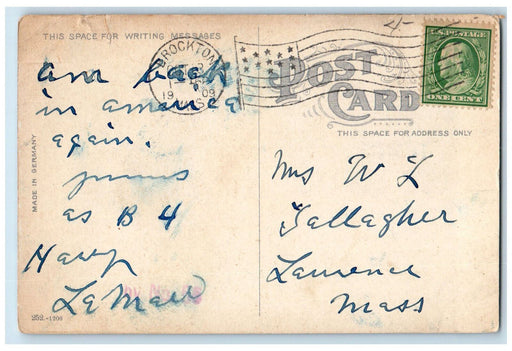 THIS SPACE FOR WRITING MESSAGES
BROCKTON
19 09
MASS
U.S. POSTAGE
ONE CENT
POST
CARD
THIS SPACE FOR ADDRESS ONLY
MADE IN GERMANY
am back
in america
again.
as B 4
Mrs W L
Gallagher
Lawrence
Mass
252.-1206